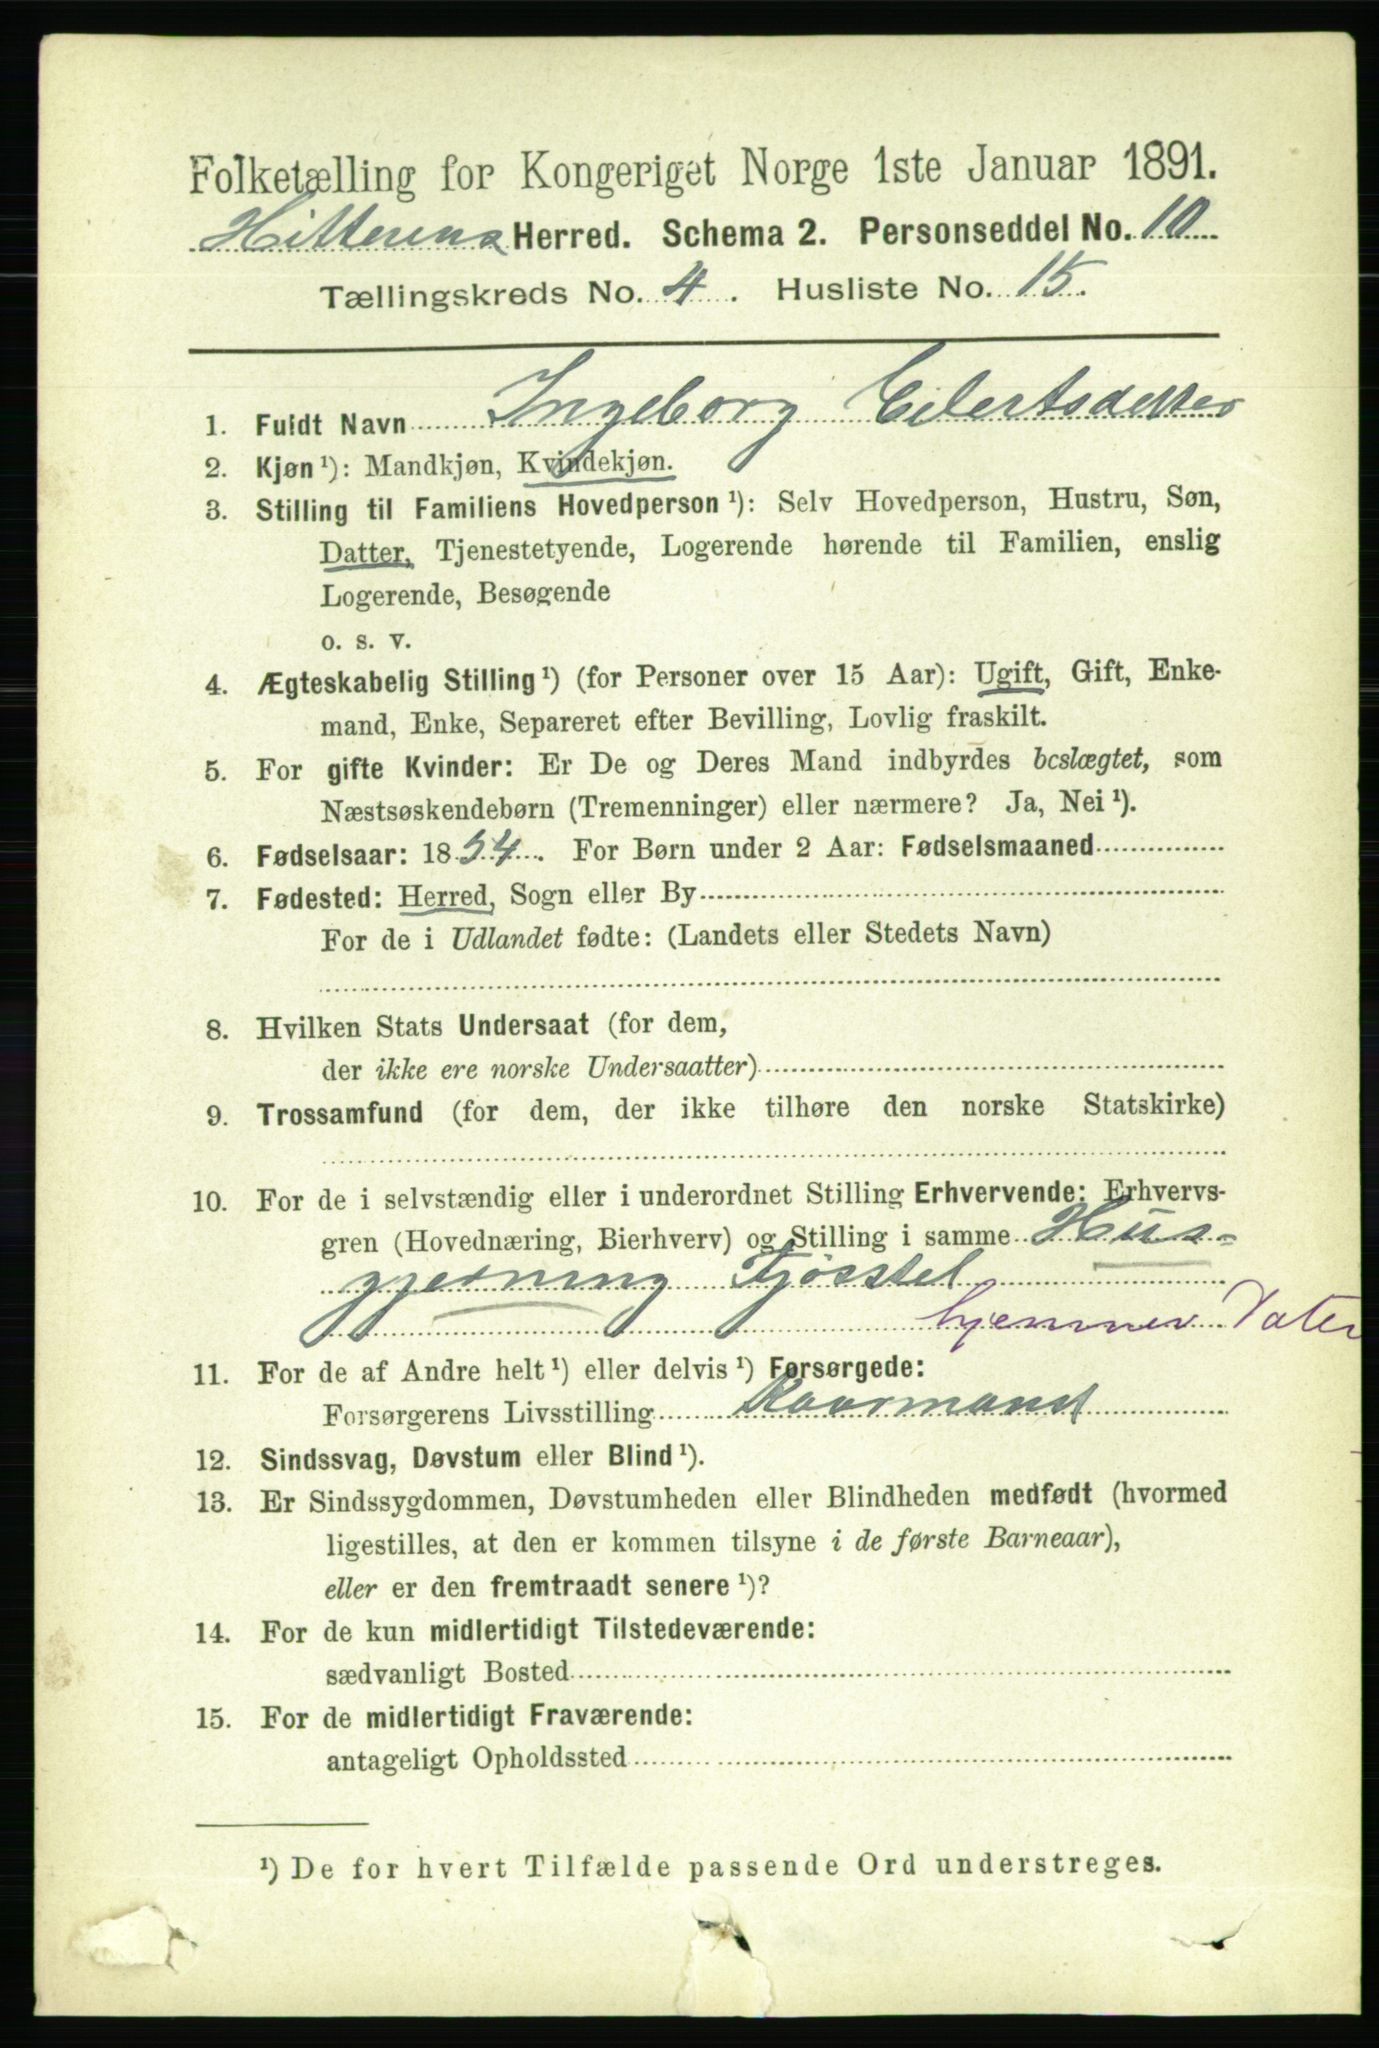 Folketælling for Kongeriget Norge 1ste Januar 1891.
Hitterens Herred. Schema 2. Personseddel No. 10
Tællingskreds No. 4. Husliste No. 15.
1. Fuldt Navn Ingeborg Eilertsdatter
2. Kjøn ¹): Mandkjøn, Kvindekjøn.
3. Stilling til Familiens Hovedperson ¹): Selv Hovedperson, Hustru, Søn,
Datter, Tjenestetyende, Logerende hørende til Familien, enslig
Logerende, Besøgende
o. s. v.
4. Ægteskabelig Stilling ¹) (for Personer over 15 Aar): Ugift, Gift, Enke-
mand, Enke, Separeret efter Bevilling, Lovlig fraskilt.
5. For gifte Kvinder: Er De og Deres Mand indbyrdes beslægtet, som
Næstsøskendebørn (Tremenninger) eller nærmere? Ja, Nei ¹).
6. Fødselsaar: 1854. For Børn under 2 Aar: Fødselsmaaned
7. Fødested: Herred, Sogn eller By
For de i Udlandet fødte: (Landets eller Stedets Navn)
8. Hvilken Stats Undersaat (for dem,
der ikke ere norske Undersaatter)
9. Trossamfund (for dem, der ikke tilhøre den norske Statskirke)
10. For de i selvstændig eller i underordnet Stilling Erhvervende: Erhvervs-
gren (Hovednæring, Bierhverv) og Stilling i samme Hus-
gjerning Fjösstel
hjemmev. Datter
11. For de af Andre helt ¹) eller delvis ¹) Forsørgede:
Forsørgerens Livsstilling Kaarmand
12. Sindssvag, Døvstum eller Blind ¹).
13. Er Sindssygdommen, Døvstumheden eller Blindheden medfødt (hvormed
ligestilles, at den er kommen tilsyne i de første Barneaar),
eller er den fremtraadt senere ¹)?
14. For de kun midlertidigt Tilstedeværende:
sædvanligt Bosted
15. For de midlertidigt Fraværende:
antageligt Opholdssted
¹) De for hvert Tilfælde passende Ord understreges.